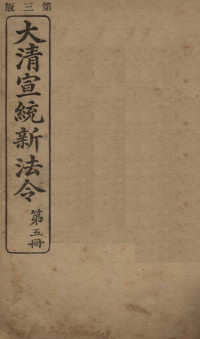 第三版
大清宣統新法令
第五冊